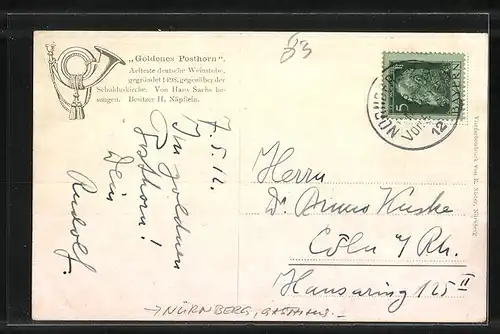 „Goldenes Posthorn“.
Aelteste deutsche Weinstube,
gegründet 1498, gegenüber der
Sebalduskirche. Von Hans Sachs be-
sungen. Besitzer H. Näpflein.
83
5
BAYERN
NÜRNB
Vor
12
7.5.12.
Im goldnen
Posthorn!
Dein
Rudolf.
Herrn
Dr. Bruno Kuske
Cöln a/Rh.
Hansaring 125 II
→ NÜRNBERG, GASTHAUS -